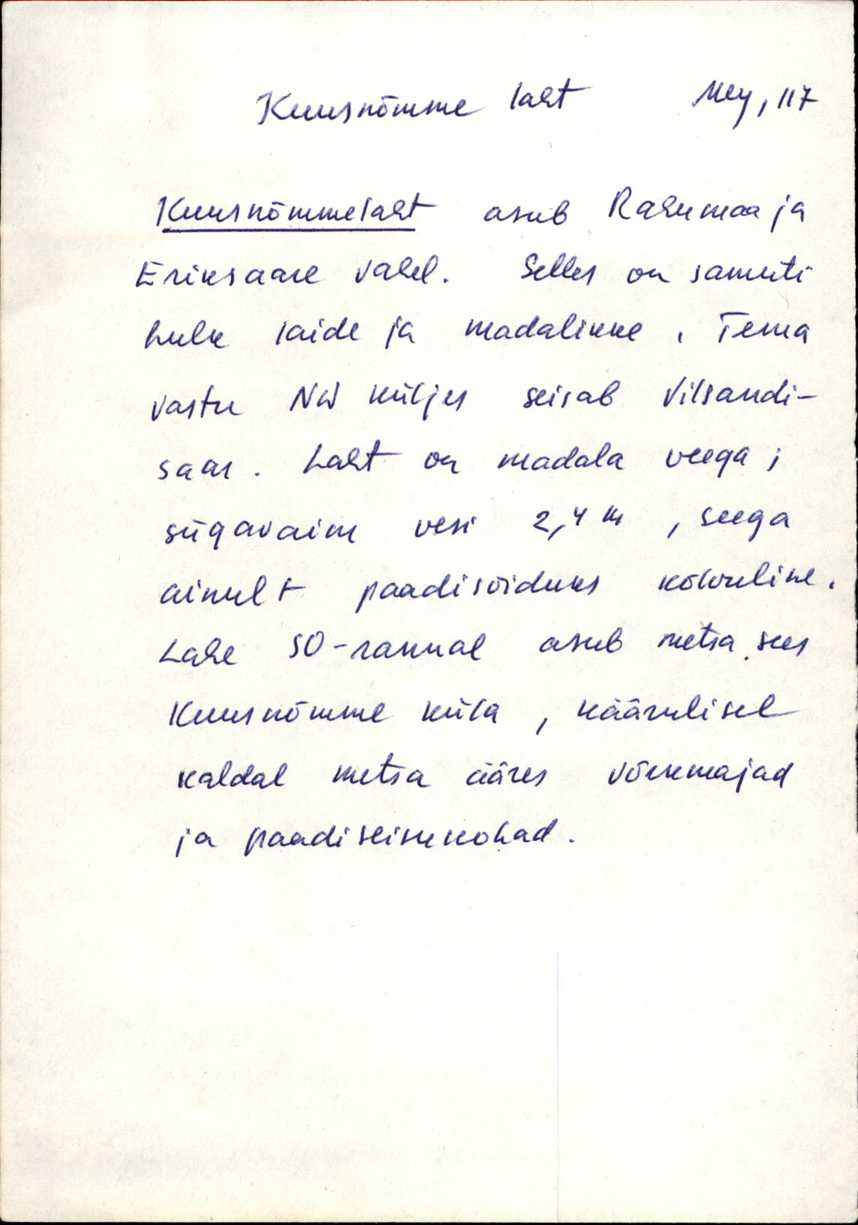 Kuusnõmme laht Mey, 117
Kuusnõmmelaht asub Rahumaa ja
Eriksaare vahel. Selles on samuti
hulk laide ja madalikke. Tema
vastu NW küljes seisab Vilsandi-
saar. Laht on madala veega;
sügavaim vesi 2,4 m, seega
ainult paadisõiduks kõlvuline.
Lahe SO-rannal asub metsa sees
Kuusnõmme küla, käärulisel
kaldal metsa ääres võrkmajad
ja paadiseisukohad.